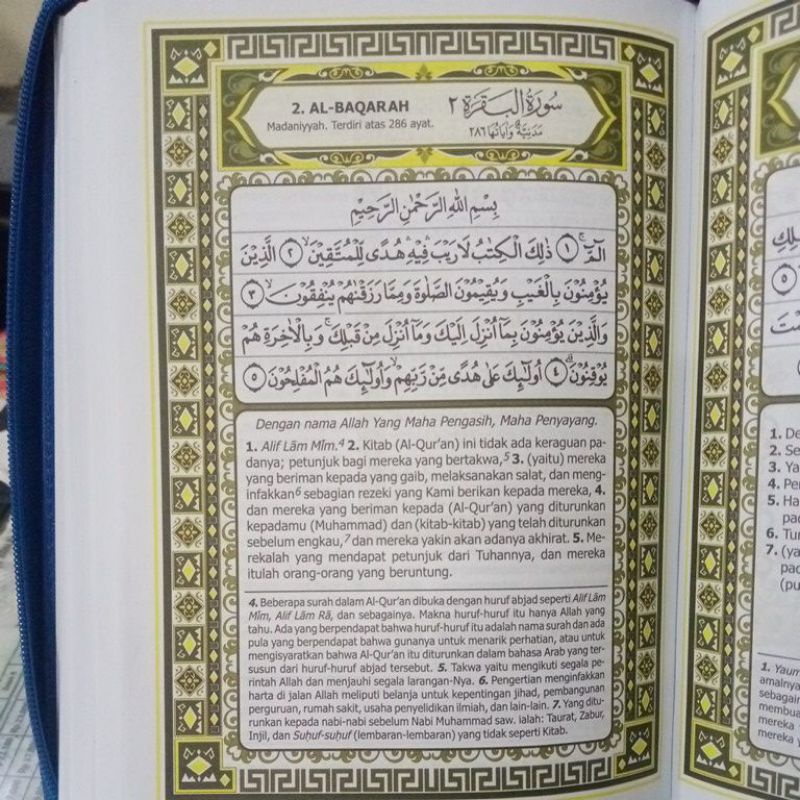 2. AL-BAQARAH
Madaniyyah. Terdiri atas 286 ayat.
سورة البقرة ٢
مدنية وآياتها ٢٨٦
بِسْمِ اللّٰهِ الرَّحْمٰنِ الرَّحِيْمِ
الۤمّۤ ۚ ١ ذٰلِكَ الْكِتٰبُ لَا رَيْبَ ۛ فِيْهِ ۛ هُدًى لِّلْمُتَّقِيْنَ ۙ ٢ الَّذِيْنَ
يُؤْمِنُوْنَ بِالْغَيْبِ وَيُقِيْمُوْنَ الصَّلٰوةَ وَمِمَّا رَزَقْنٰهُمْ يُنْفِقُوْنَ ۙ ٣
وَالَّذِيْنَ يُؤْمِنُوْنَ بِمَآ اُنْزِلَ اِلَيْكَ وَمَآ اُنْزِلَ مِنْ قَبْلِكَ ۚ وَبِالْاٰخِرَةِ هُمْ
يُوْقِنُوْنَ ۗ ٤ اُولٰۤىِٕكَ عَلٰى هُدًى مِّنْ رَّبِّهِمْ ۙ وَاُولٰۤىِٕكَ هُمُ الْمُفْلِحُوْنَ ٥
Dengan nama Allah Yang Maha Pengasih, Maha Penyayang.
1. Alif Lām Mīm.4 2. Kitab (Al-Qur'an) ini tidak ada keraguan pa-
danya; petunjuk bagi mereka yang bertakwa,5 3. (yaitu) mereka
yang beriman kepada yang gaib, melaksanakan salat, dan meng-
infakkan6 sebagian rezeki yang Kami berikan kepada mereka, 4.
dan mereka yang beriman kepada (Al-Qur'an) yang diturunkan
kepadamu (Muhammad) dan (kitab-kitab) yang telah diturunkan
sebelum engkau,7 dan mereka yakin akan adanya akhirat. 5. Me-
rekalah yang mendapat petunjuk dari Tuhannya, dan mereka
itulah orang-orang yang beruntung.
4. Beberapa surah dalam Al-Qur'an dibuka dengan huruf abjad seperti Alif Lām
Mīm, Alif Lām Rā, dan sebagainya. Makna huruf-huruf itu hanya Allah yang
tahu. Ada yang berpendapat bahwa huruf-huruf itu adalah nama surah dan ada
pula yang berpendapat bahwa gunanya untuk menarik perhatian, atau untuk
mengisyaratkan bahwa Al-Qur'an itu diturunkan dalam bahasa Arab yang ter-
susun dari huruf-huruf abjad tersebut. 5. Takwa yaitu mengikuti segala pe-
rintah Allah dan menjauhi segala larangan-Nya. 6. Pengertian menginfakkan
harta di jalan Allah meliputi belanja untuk kepentingan jihad, pembangunan
perguruan, rumah sakit, usaha penyelidikan ilmiah, dan lain-lain. 7. Yang ditu-
runkan kepada nabi-nabi sebelum Nabi Muhammad saw. ialah: Taurat, Zabur,
Injil, dan Suḥuf-suḥuf (lembaran-lembaran) yang tidak seperti Kitab.
1. De
2. Se
3. Ya
4. Pe
5. Ha
pad
6. Tun
7. (ya
pad
(pu
1. Yaum
amalnya
sebagain
membua
mereka
mereka y